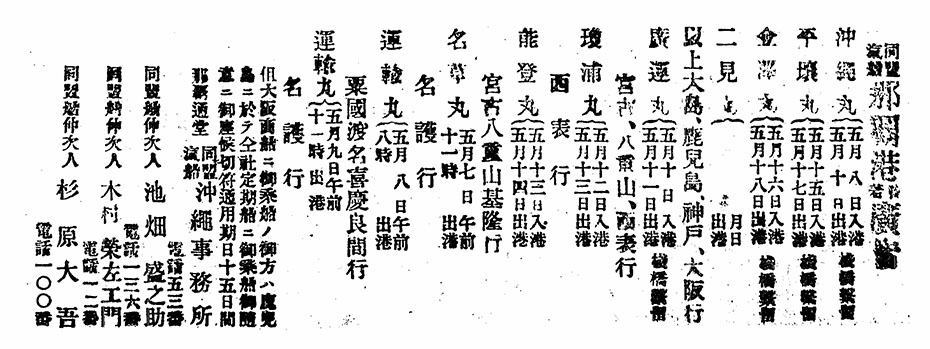 同盟汽船那覇港發着廣告
沖繩丸 五月八日入港 五月十日出港 棧橋繋留
平壤丸 五月十五日入港 五月十七日出港 棧橋繋留
金澤丸 五月十六日入港 五月十八日出港 棧橋繋留
二見丸 月日出港
以上大島、鹿兒島、神戸、大阪行
廣運丸 五月十日入港 五月十一日出港 棧橋繋留
宮古、八重山、西表行
瓊浦丸 五月十二日入港 五月十三日出港
西表行
能登丸 五月十三日入港 五月十四日出港
宮古八重山基隆行
名草丸 五月七日午前十一時出港
名護行
運輸丸 五月八日午前八時出港
粟國渡名喜慶良間行
運輸丸 五月九日午前十一時出港
名護行
但大阪商船ニ御乘船ノ御方ハ鹿兒
島ニ於テ仝社定期船ニ御乘船御隨
意ニ御座候切符通用期日十五日間
那覇通堂 同盟汽船 沖繩事務所
電話五三番
同盟船仲次人 池畑盛之助
電話一三六番
同盟船仲次人 木村榮左工門
電話一二番
同盟船仲次人 杉原大吾
電話一〇〇番